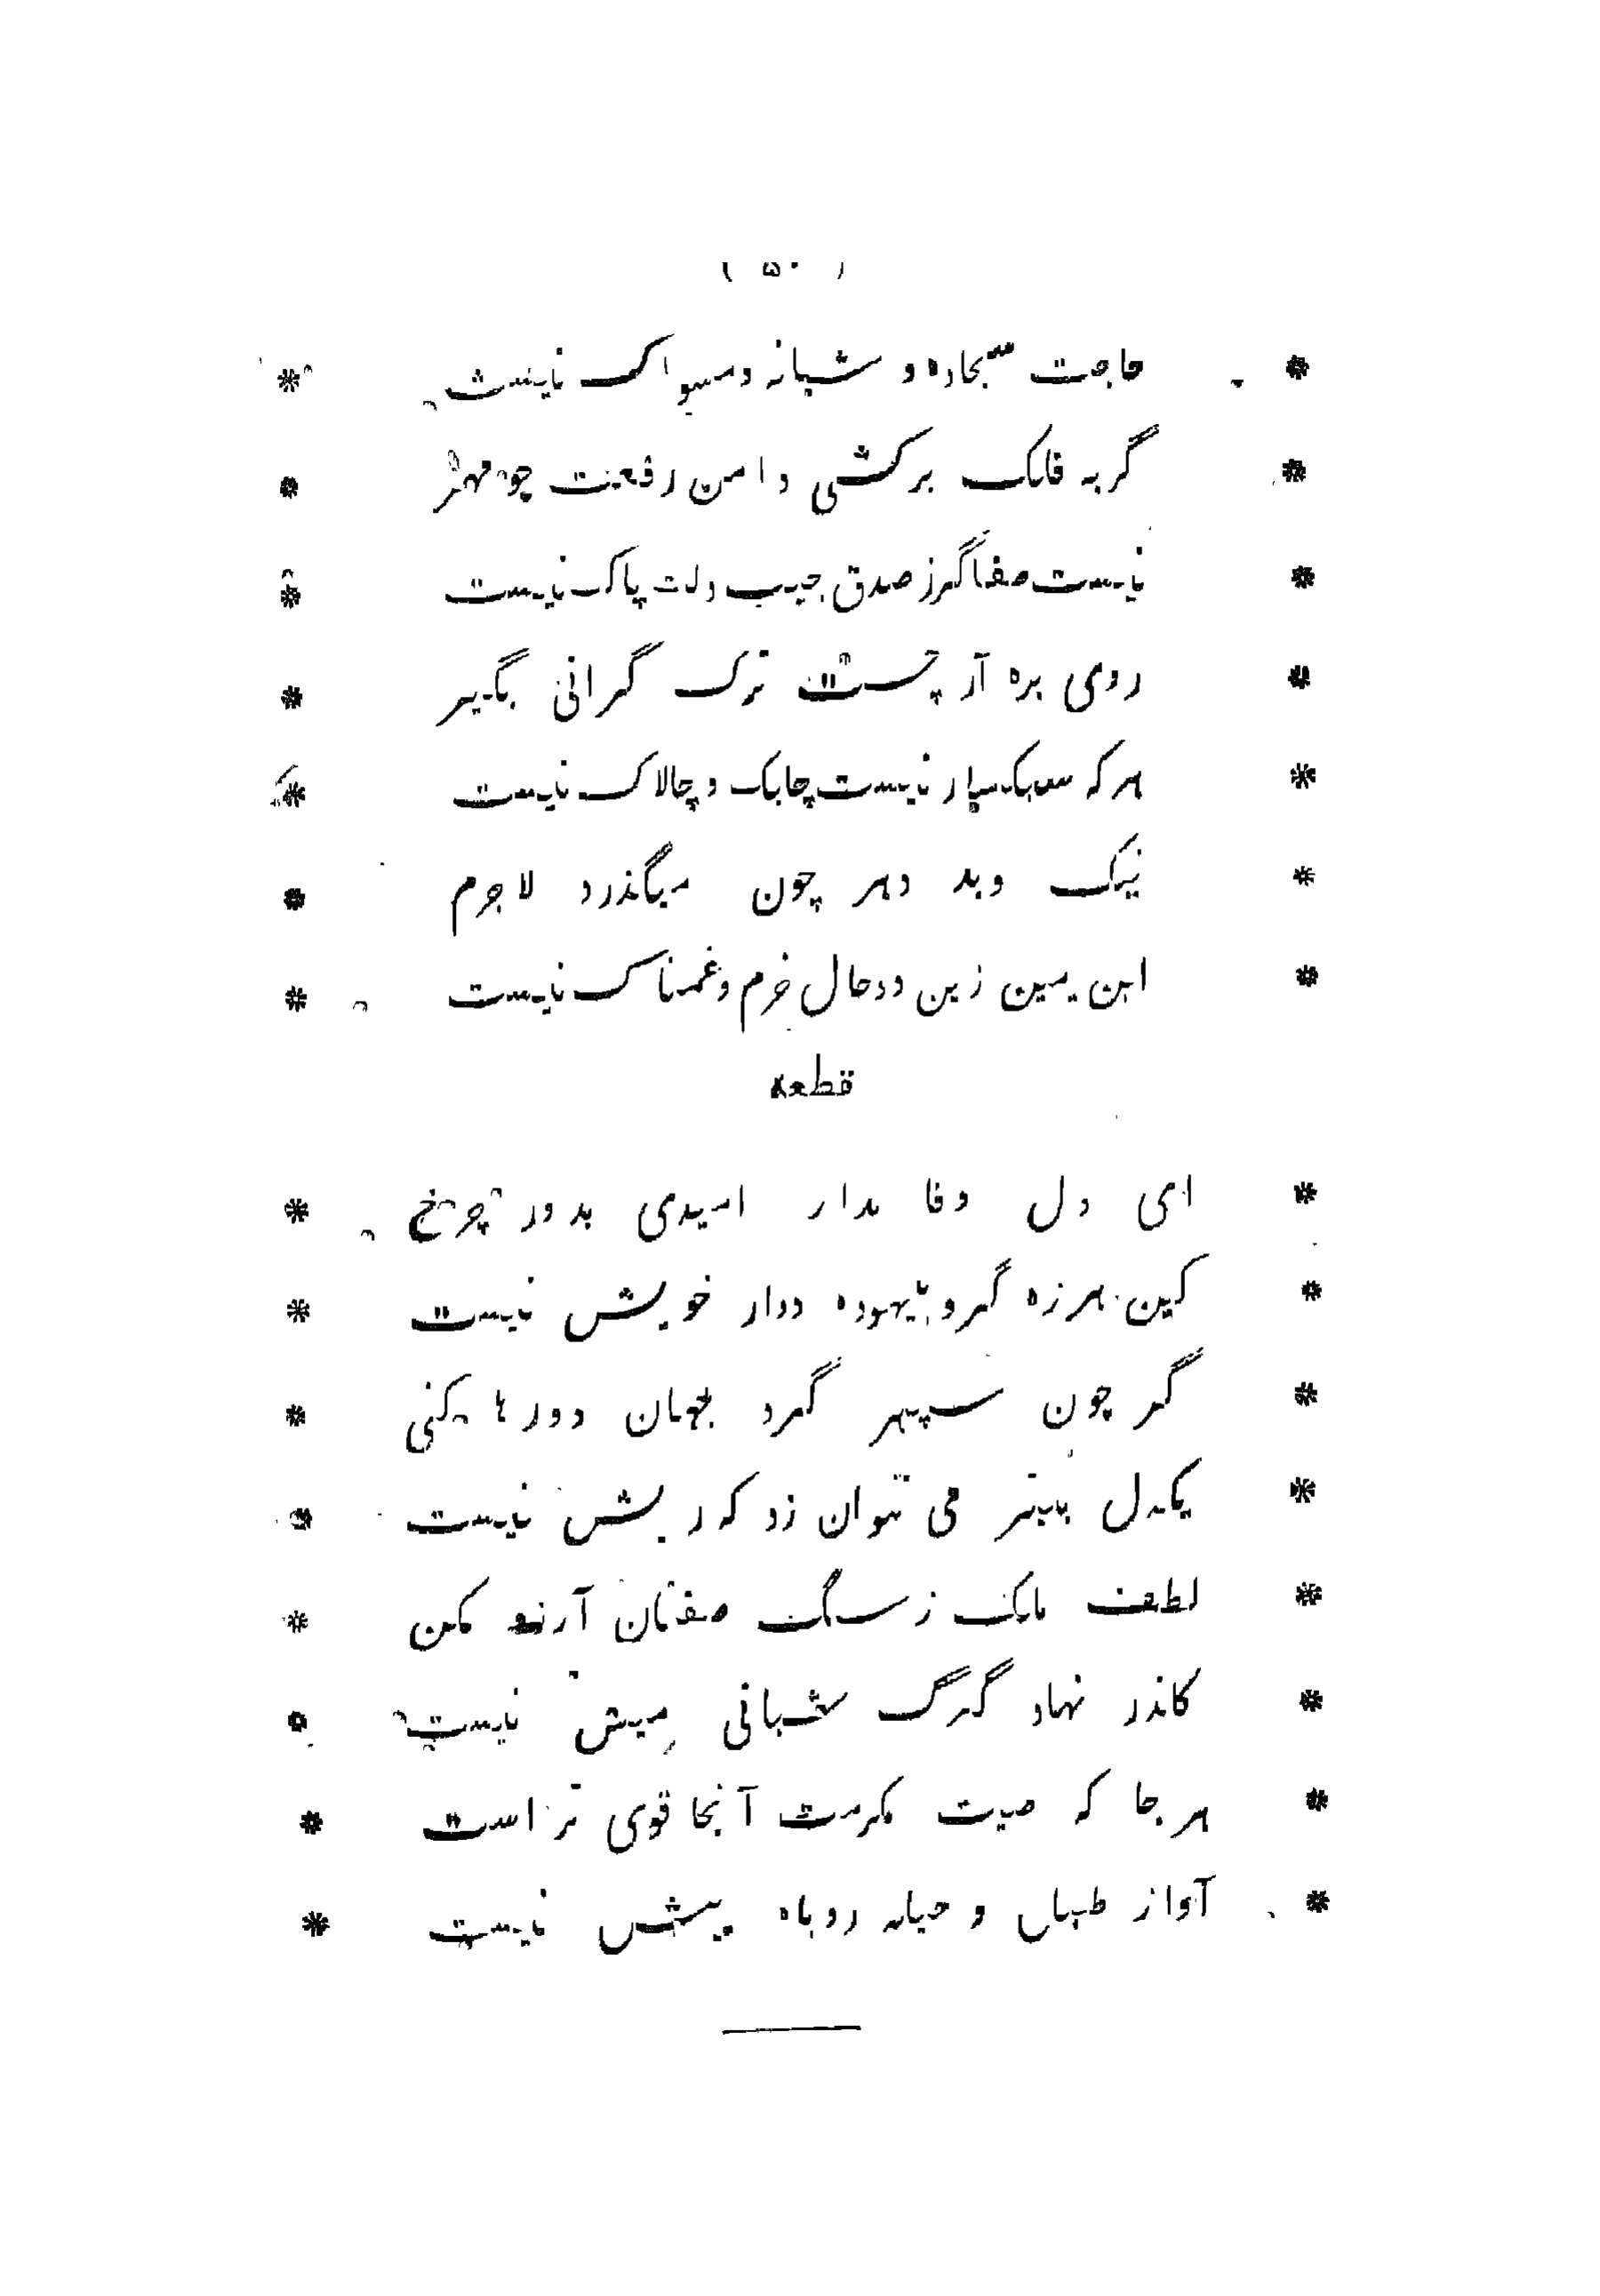 ( ۵۰ )
* حاجت سجاده و شانه ومسواک نیست *
* گر به فلک برکشی دامن رفعت چو مهر *
* نیست صفا گرز صدق جیب دلت پاک نیست *
* روی بره آر چست ترک گرانی بگیر *
* هرکه سبکسار نیست چابک و چالاک نیست *
* نیک وبد دهر چون میگذرد لاجرم *
* ابن یمین زین دوحال خرم وغمناک نیست *
قطعه
* ای دل وفا مدار امیدی بدور چرخ *
* کین هرزه گرو بیهوده دوار خویش نیست *
* گر چون سپهر گرد جهان دورها کنی *
* یکدل بتیر می توان زد که ریش نیست *
* لطف ملک ز سگ صفتان آرزو مکن *
* کاندر نهاد گرگ شبانی میش نیست *
* هر جا که صیت مکرمت آنجا قوی تر است *
* آواز طبل و حیله روباه بیش نیست *